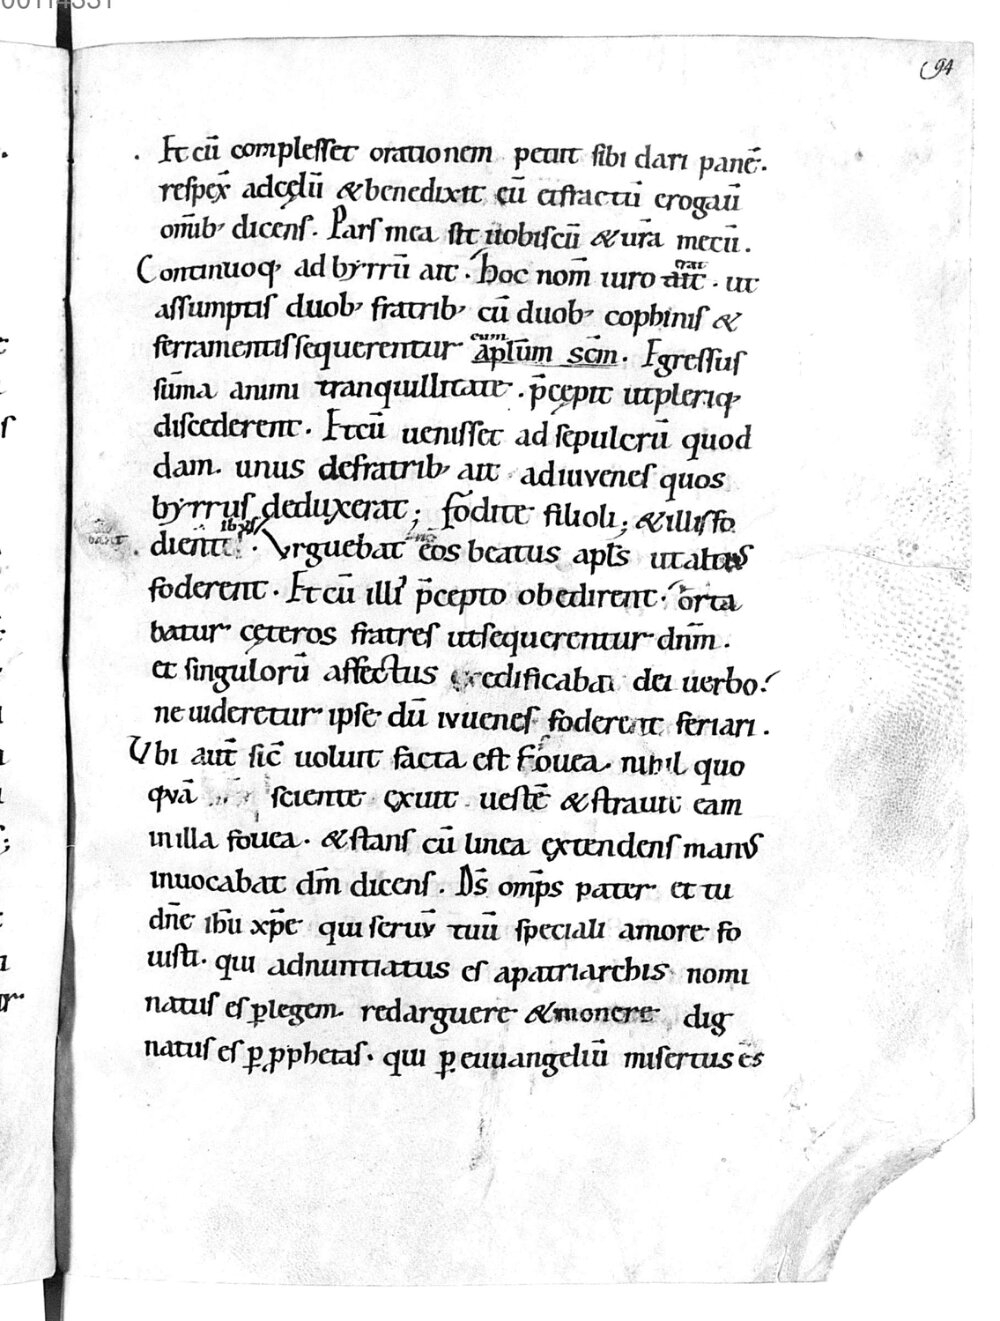 94
. Et cū complesset orationem petiit sibi dari panē.
respex̄ ad cęlū & benedixit eū et fractū erogauī
om̄ib; dicens. Pars mea sit uobiscū & ur̄a mecū.
Continuoq; ad byrrū ait. hoc nom̄ uiro erat . ut
assumptis duob; fratrib; cū duob; cophinis &
ferramentis sequerentur apl̄um sc̄m. Egressus
sūma animi tranquillitate. p̄cępit ut pleriq;
discederent. Et cū uenisset ad sepulcrū quod
dam. unus de fratrib; ait ad iuuenes quos
byrrus deduxerat; fodite filioli; & illis fo
dientib;. Vrguebat eos beatus apl̄s ut altius
foderent. Et cū illi p̄cepto obedirent. orta
batur cęteros fratres ut sequerentur dn̄m.
et singulorū affectus edificabat dei uerbo.
ne uideretur ipse dū iuuenes foderent feriari.
Vbi aut̄ sic̄ uoluit facta est fouea. nihil quo
quā sciente exuit uestē & strauit eam
in illa fouea. & stans cū linea extendens manus
inuocabat dm̄ dicens. Ds̄ omp̄s pater et tu
dn̄e ihū xp̄e qui seruū tuū speciali amore fo
uisti. qui adnuntiatus es a patriarchis nomi
natus es ꝑ legem. redarguere & monere dig
natus es ꝑ ꝓphetas. qui ꝑ euuangeliū misertus es